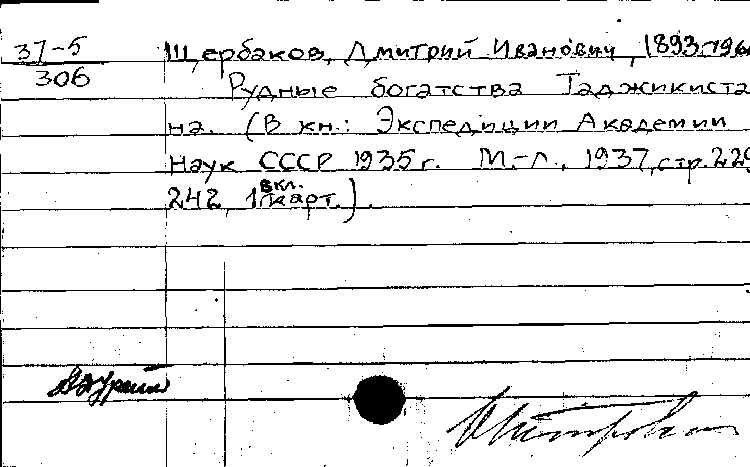 37-5
306
Щербаков, Дмитрий Иванович, 1893-196
Рудные богатства Таджикиста
на. (В кн.: Экспедиции Академии
Наук СССР 1935 г. М.-Л., 1937, стр. 229
242, 1 вкл. карт.).